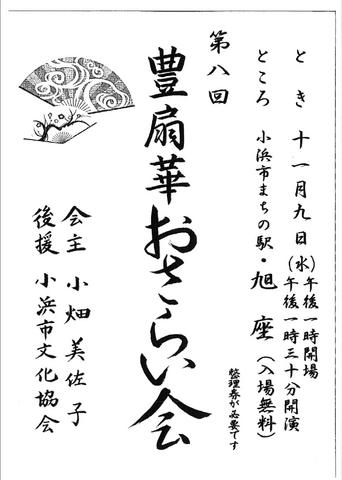 とき 十一月九日(水)午後一時開場
午後一時三十分開演
ところ 小浜市まちの駅・旭座(入場無料)
整理券が必要です
第八回
豊扇華おさらい会
会主 小畑美佐子
後援 小浜市文化協会